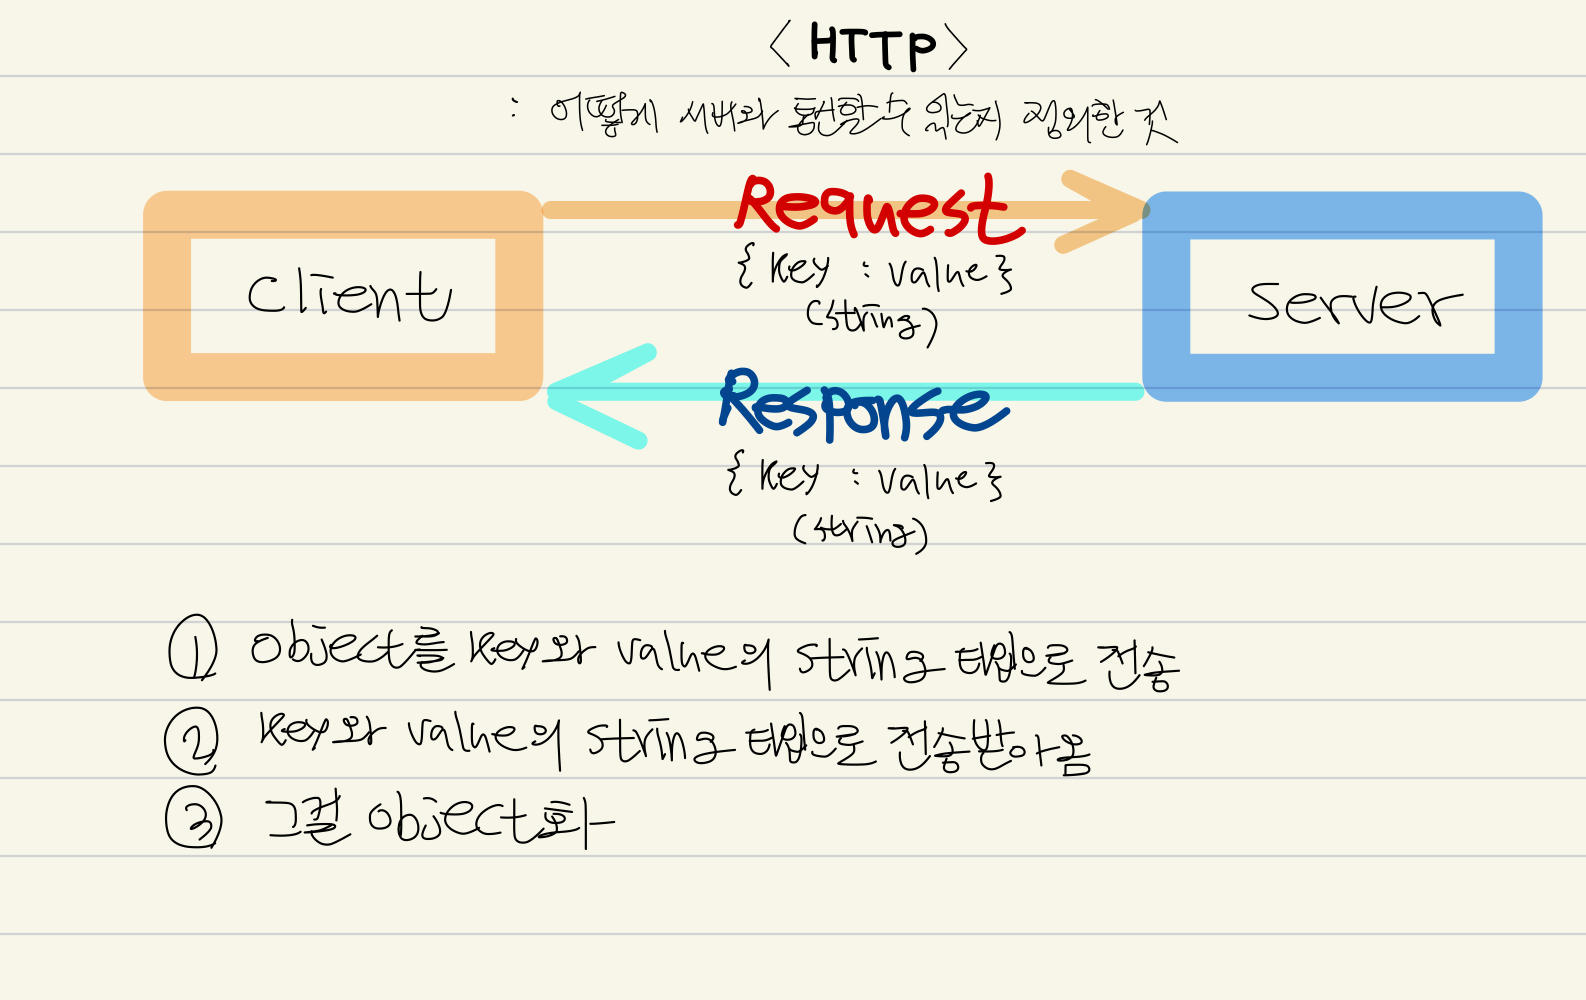 < HTTP >
: 어떻게 서버와 통신할 수 있는지 정의한 것
Request
Client
{ key : value }
Server
(string)
Response
{ key : value }
(string)
① Object를 key와 value의 string 타입으로 전송
② key와 value의 string 타입으로 전송받아옴
③ 그걸 object화